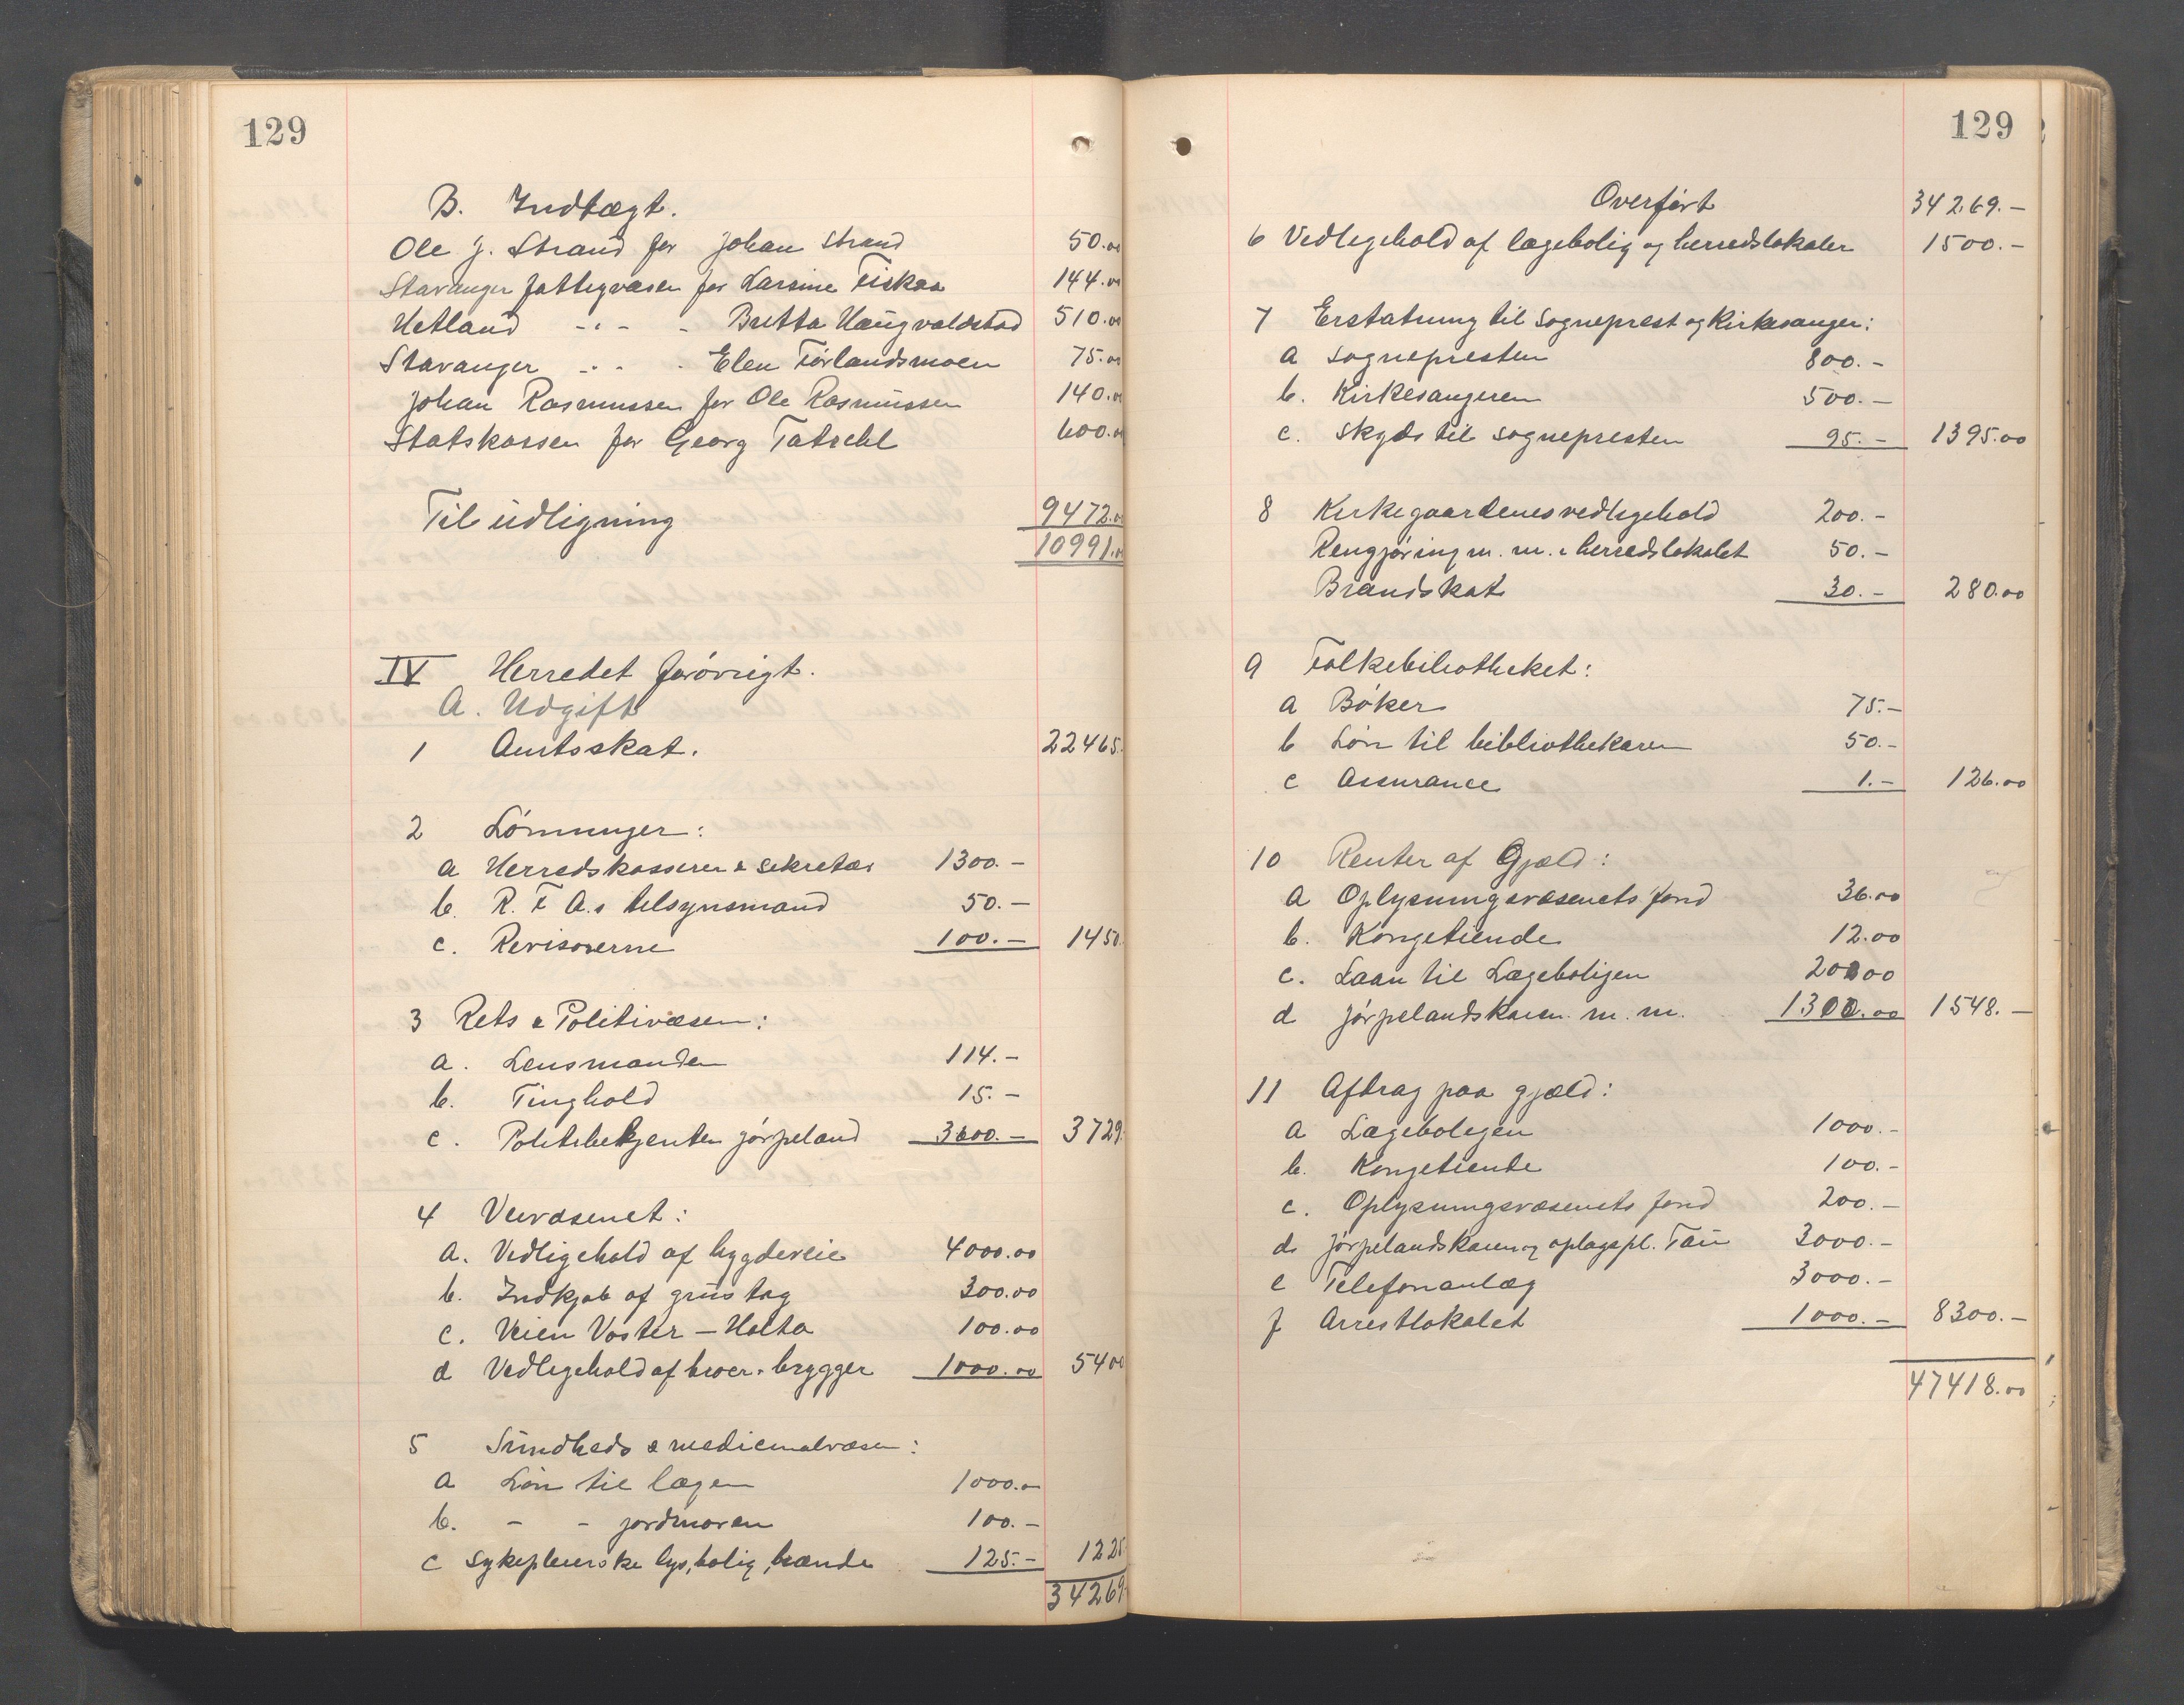 129
B. Indtægt.
Ole J. Strand for Johan Strand 50.00
Stavanger fattigvæsen for Larsine Fiskaa 144.00
Hetland -"- - Britta Haugvaldstad 510.00
Stavanger -"- - Elen Förlandsmoen 75.00
Johan Rasmussen for Ole Rasmussen 140.00
Statskassen for Georg Tatschl 600.00
Til udligning 9472.00
10991.00
IV Herredet forövrigt.
A. Udgift
1 Amtsskat. 22465.
2 Lönninger:
a Herredskasserer & sekretær 1300.-
b. R. F. A.s tilsynsmand 50.-
c. Revisorerne 100.- 1450.
3 Rets & Politivæsen:
a. Lensmanden 114.-
b. Tinghold 15.-
c. Politibetjenten Jörpeland 3600.- 3729.
4 Veivæsenet:
a. Vedligehold af bygdeveie 4000.00
b. Indkjøb af grustag 300.00
c. Veien Voster - Holta 100.00
d Vedligehold af broer & brygger 1000.00 5400
5 Sundheds & medicinalvæsen:
a Lön til lægen 1000.-
b. - - jordmoren 100.-
c Sykepleierske lys, bolig, brænde 125.- 1225.
34269.
129
Overfört 34269.-
6 Vedligehold af lægebolig og herredslokaler 1500.-
7 Erstatning til Sogneprest og Kirkesanger:
a Sognepresten 800.-
b. Kirkesangeren 500.-
c. Skyds til sognepresten 95.- 1395.00
8 Kirkegaardenes vedligehold 200.-
Rengjöring m. m. i herredslokalet 50.-
Brandskat 30.- 280.00
9 Folkebibliotheket:
a Böker 75.-
b Lön til bibliothekaren 50.-
c Assurance 1.- 126.00
10 Renter af Gjæld:
a Oplysningsvæsenets fond 36.00
b. Kongetiende 12.00
c. Laan til Lægeboligen 200.00
d Jörpelandskaien m. m. 1300.00 1548.-
11 Afdrag paa gjæld:
a Lægeboligen 1000.-
b. Kongetiende 100.-
c. Oplysningsvæsenets fond 200.-
d. Jörpelandskaien og oplagspl. Tau 3000.-
e Telefonanlæg 3000.-
f Arrestlokalet 1000.- 8300.-
47418.00